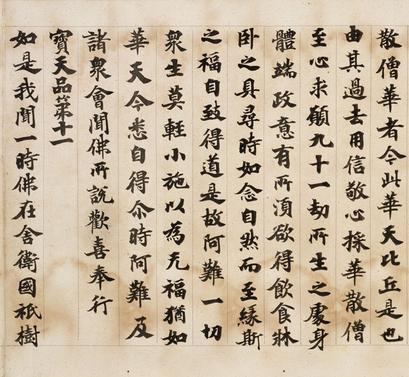 散僧華者今此華天比丘是也
由其過去用信敬心採華散僧
至心求願九十一劫所生之處身
體端政意有所湏欲得飲食牀
卧之具尋時如念自然而至緣斯
之福自致得道是故阿難一切
衆生莫輕小施以為无福猶如
華天今悉自得尒時阿難及
諸衆會聞佛所說歡喜奉行
寶天品第十一
如是我聞一時佛在舍衛國祇樹